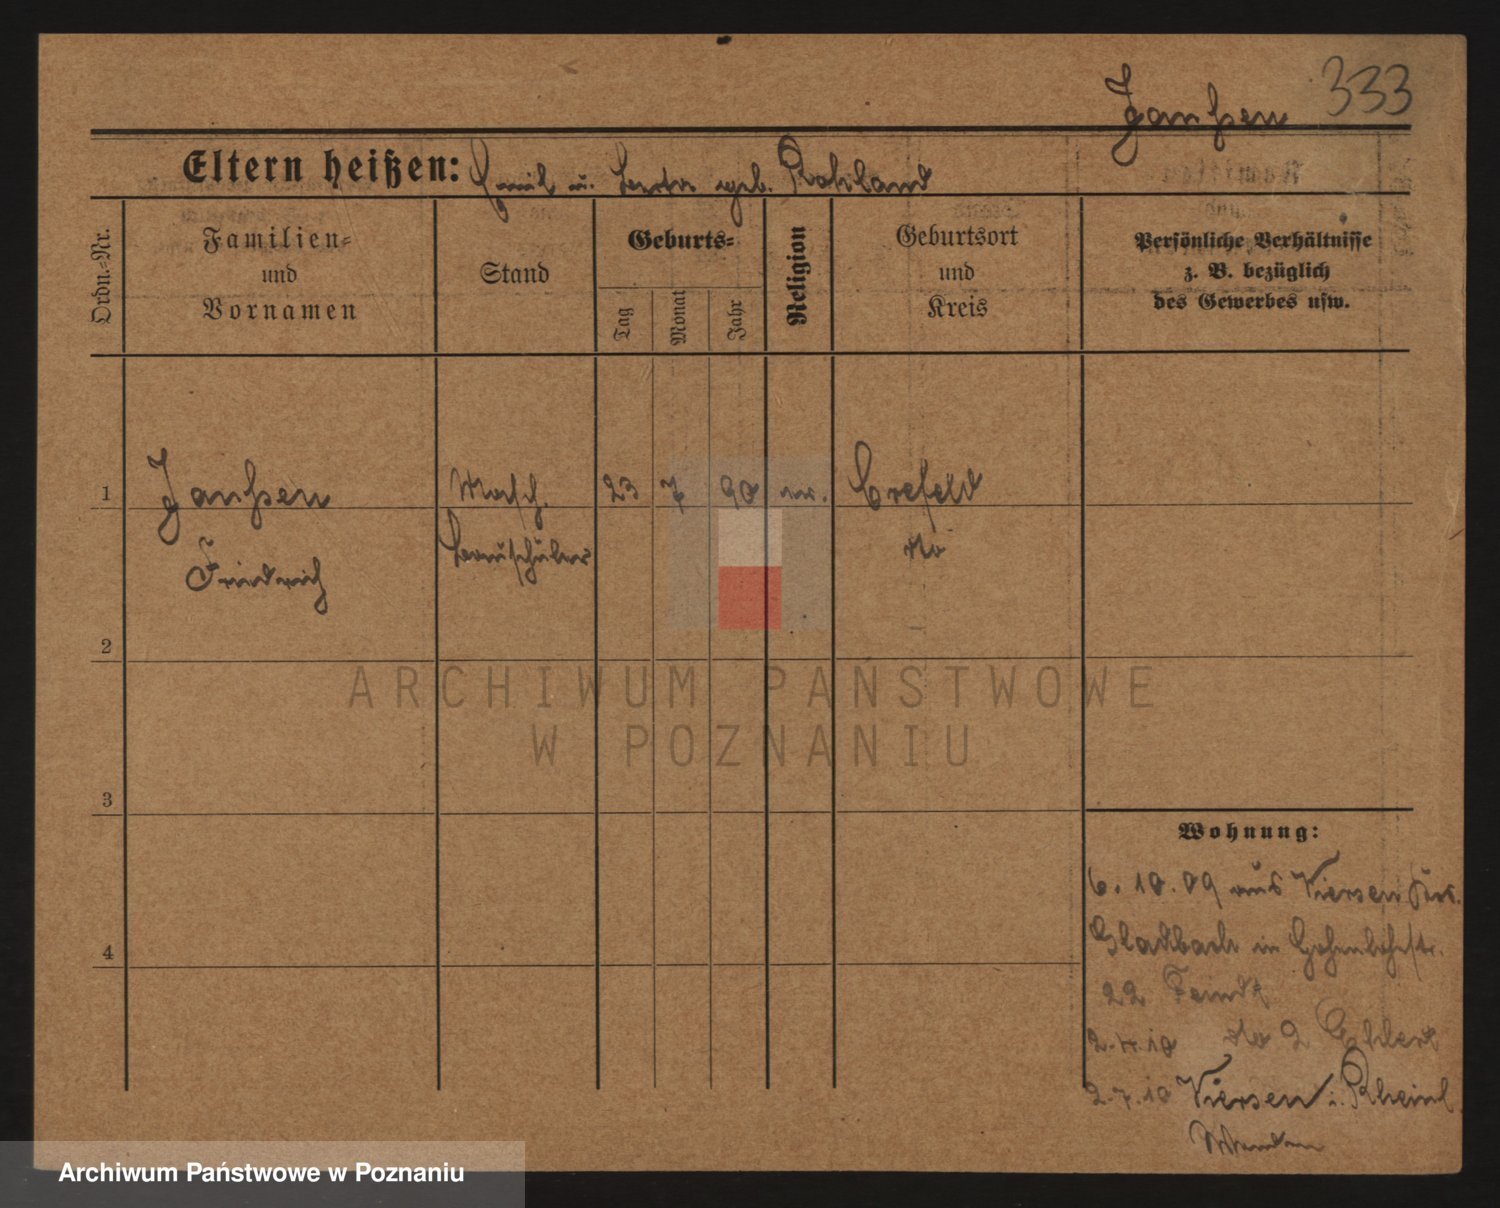 Janßen 333
Eltern heißen: Emil u. Berta geb. Rohland
Ordn.=Nr.
Familien=
und
Vornamen
Stand
Geburts=
Tag
Monat
Jahr
Religion
Geburtsort
und
Kreis
Persönliche Verhältnisse
z. B. bezüglich
des Gewerbes usw.
1 Janßen Masch. 23 7 90 ev. Crefeld
Friedrich Bauschüler do
2
3
4
Wohnung:
6.10.09 aus Viersen Krs.
Gladbach in
22
2.4.10 do 2 Ehlert
2.7.10 Viersen i. Rheinl.
ARCHIWUM PAŃSTWOWE
W POZNANIU
Archiwum Państwowe w Poznaniu